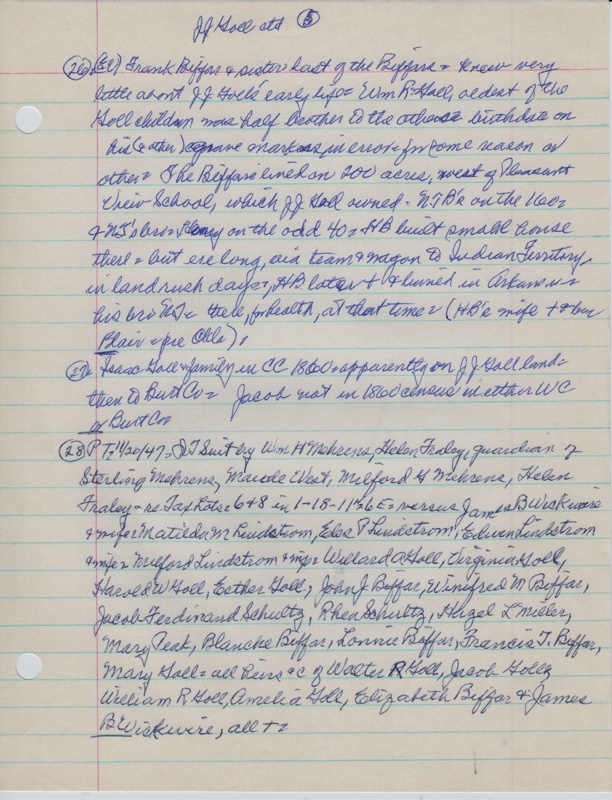 JJ Goll ctd ⑤
(26) (EU) Frank Biffar & sister last of the Biffars = knew very
little about JJ Goll's early life = Wm R Goll, oldest of the
Goll children was half brother to the others = birthdate on
his (& other) grave markers in error for some reason or
other = The Biffars lived on 200 acres, west of Pleasant
View School, which JJ Goll owned = NJB's on the 160=
& NJ's bro = on the odd 40 = HB built small house
there = but ere long, via team & wagon to Indian Territory,
in landrush days =, HB later + & buried in Arkansas =
his bro NJ = there, for health, at that time = (HB's wife + & bur
Blair = pre Okla) =
(27) = Isaac Goll & family in CC 1860 = apparently on JJ Goll land =
then to Burt Co = Jacob not in 1860 census in either WC
or Burt Co =
(28) PT, 11/20/47 = QT Suit by Wm H Mehrens, Helen Fraley, guardian of
Sterling Mehrens, Maude West, Milford G Mehrens, Helen
Fraley = re Tax Lots = 6 & 8 in 1-18-11 = versus James B Wickwire
& wife = Matilda M Lindstrom, P Lindstrom, Edwin Lindstrom
& wife = Milford Lindstrom & wife = Willard A Goll, Virginia Goll,
Harold W Goll, Esther Goll, John J Biffar, Winifred M Biffar,
Jacob Ferdinand Schultz, Rhea Schultz, Hazel L Miller,
Mary Peak, Blanche Biffar, Lonnie Biffar, Francis T. Biffar,
Mary Goll = all heirs &c of Walter R Goll, Jacob Goll,
William R Goll, Amelia Goll, Elizabeth Biffar & James
B Wickwire, all + =